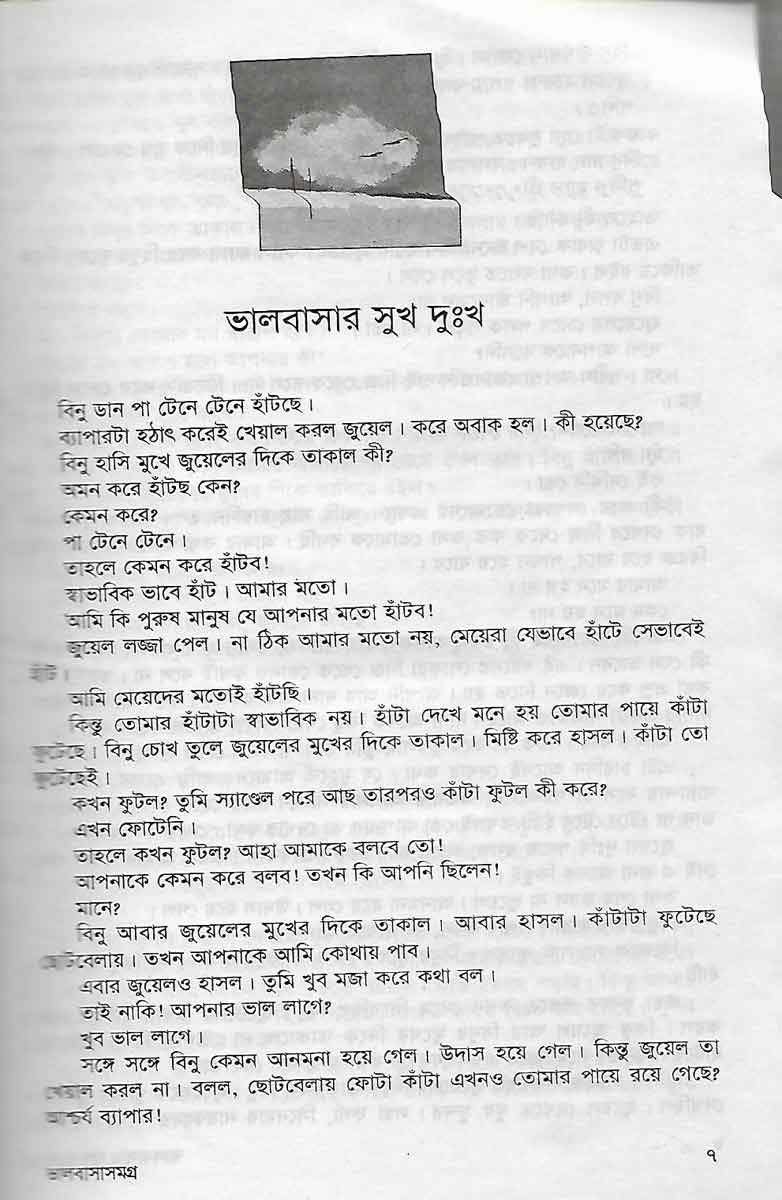 ভালবাসার সুখ দুঃখ
বিনু ডান পা টেনে টেনে হাঁটছে।
ব্যাপারটা হঠাৎ করেই খেয়াল করল জুয়েল। করে অবাক হল। কী হয়েছে?
বিনু হাসি মুখে জুয়েলের দিকে তাকাল কী?
অমন করে হাঁটছ কেন?
কেমন করে?
পা টেনে টেনে।
তাহলে কেমন করে হাঁটব!
স্বাভাবিক ভাবে হাঁট। আমার মতো।
আমি কি পুরুষ মানুষ যে আপনার মতো হাঁটব!
জুয়েল লজ্জা পেল। না ঠিক আমার মতো নয়, মেয়েরা যেভাবে হাঁটে সেভাবেই
হাঁট।
আমি মেয়েদের মতোই হাঁটছি।
কিন্তু তোমার হাঁটাটা স্বাভাবিক নয়। হাঁটা দেখে মনে হয় তোমার পায়ে কাঁটা
ফুটেছে। বিনু চোখ তুলে জুয়েলের মুখের দিকে তাকাল। মিষ্টি করে হাসল। কাঁটা তো
ফুটেছেই।
কখন ফুটল? তুমি স্যাণ্ডেল পরে আছ তারপরও কাঁটা ফুটল কী করে?
এখন ফোটেনি।
তাহলে কখন ফুটল? আহা আমাকে বলবে তো!
আপনাকে কেমন করে বলব! তখন কি আপনি ছিলেন!
মানে?
বিনু আবার জুয়েলের মুখের দিকে তাকাল। আবার হাসল। কাঁটাটা ফুটেছে
ছোটবেলায়। তখন আপনাকে আমি কোথায় পাব।
এবার জুয়েলও হাসল। তুমি খুব মজা করে কথা বল।
তাই নাকি! আপনার ভাল লাগে?
খুব ভাল লাগে।
সঙ্গে সঙ্গে বিনু কেমন আনমনা হয়ে গেল। উদাস হয়ে গেল। কিন্তু জুয়েল তা
খেয়াল করল না। বলল, ছোটবেলায় ফোটা কাঁটা এখনও তোমার পায়ে রয়ে গেছে?
আশ্চর্য ব্যাপার!
৭
ভালবাসাসমগ্র